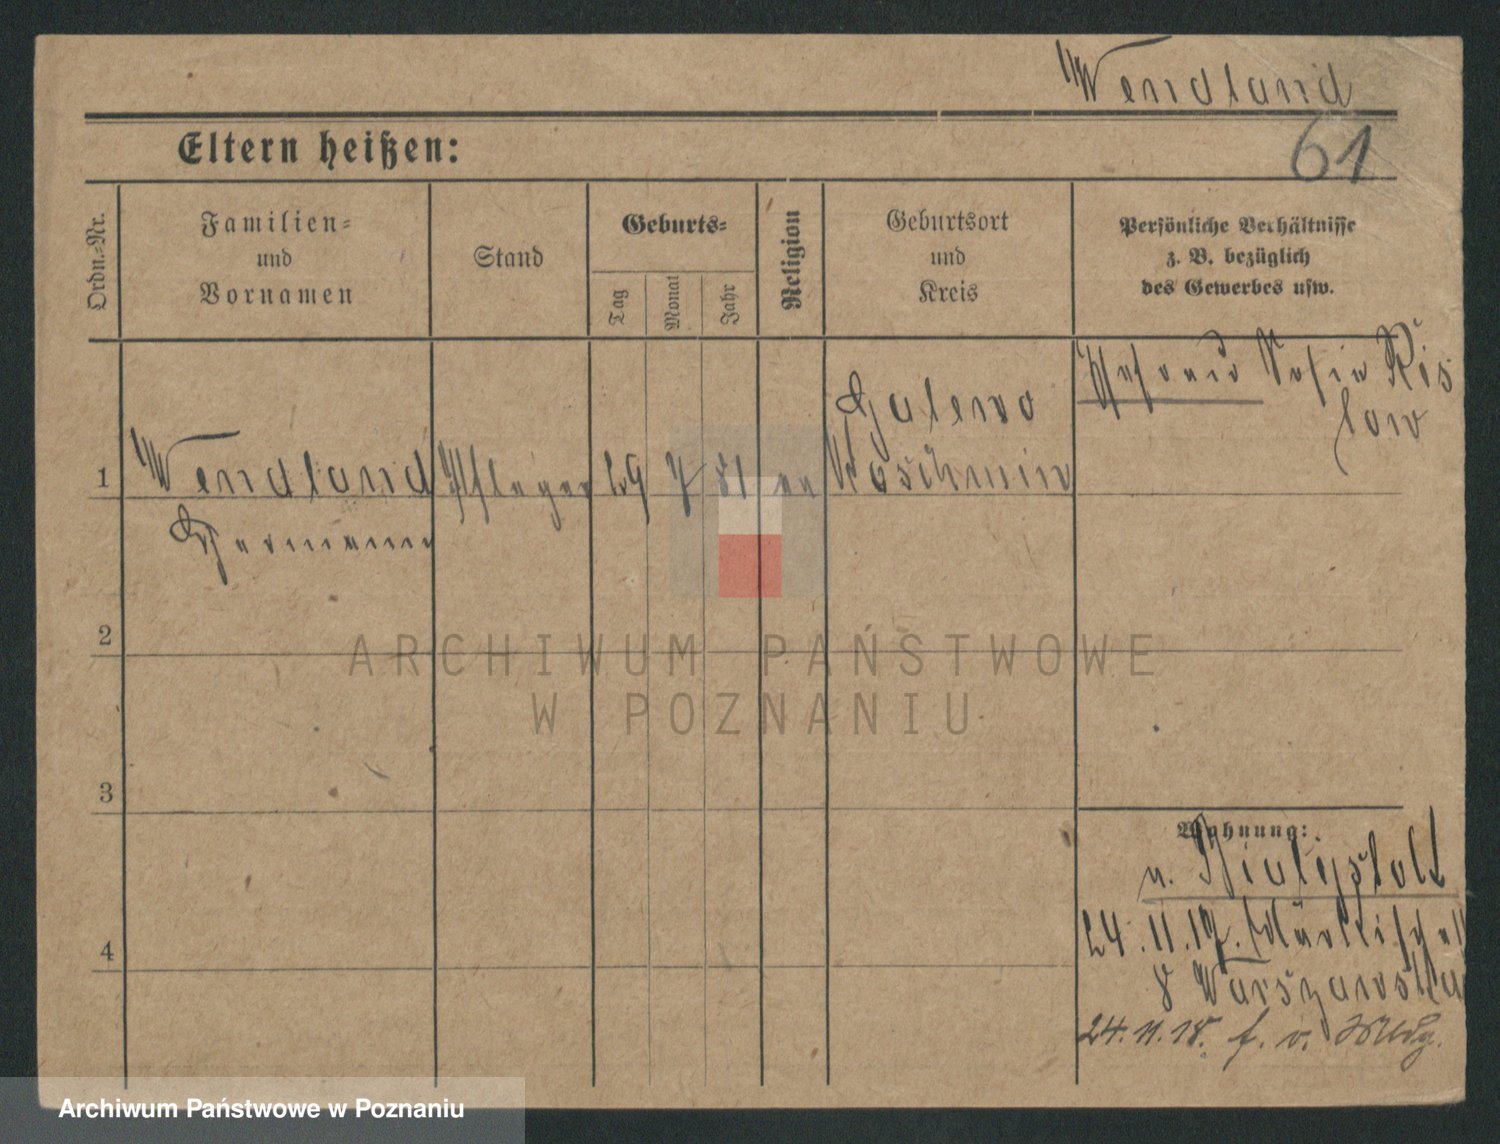 Wendland
61
Eltern heißen:
Ordn.-Nr.
Familien-
und
Vornamen
Stand
Geburts-
Tag
Monat
Jahr
Religion
Geburtsort
und
Kreis
Persönliche Verhältnisse
z. B. bezüglich
des Gewerbes usw.
1 Wendland Pfleger 29 7 81 ev
Hermann
Galewo
Koschmin
2
3
4
Wohnung:
n. Bialystok
24.11.17.
8 Warszawska
24.11.18. f. v.
ARCHIWUM PAŃSTWOWE
W POZNANIU
Archiwum Państwowe w Poznaniu